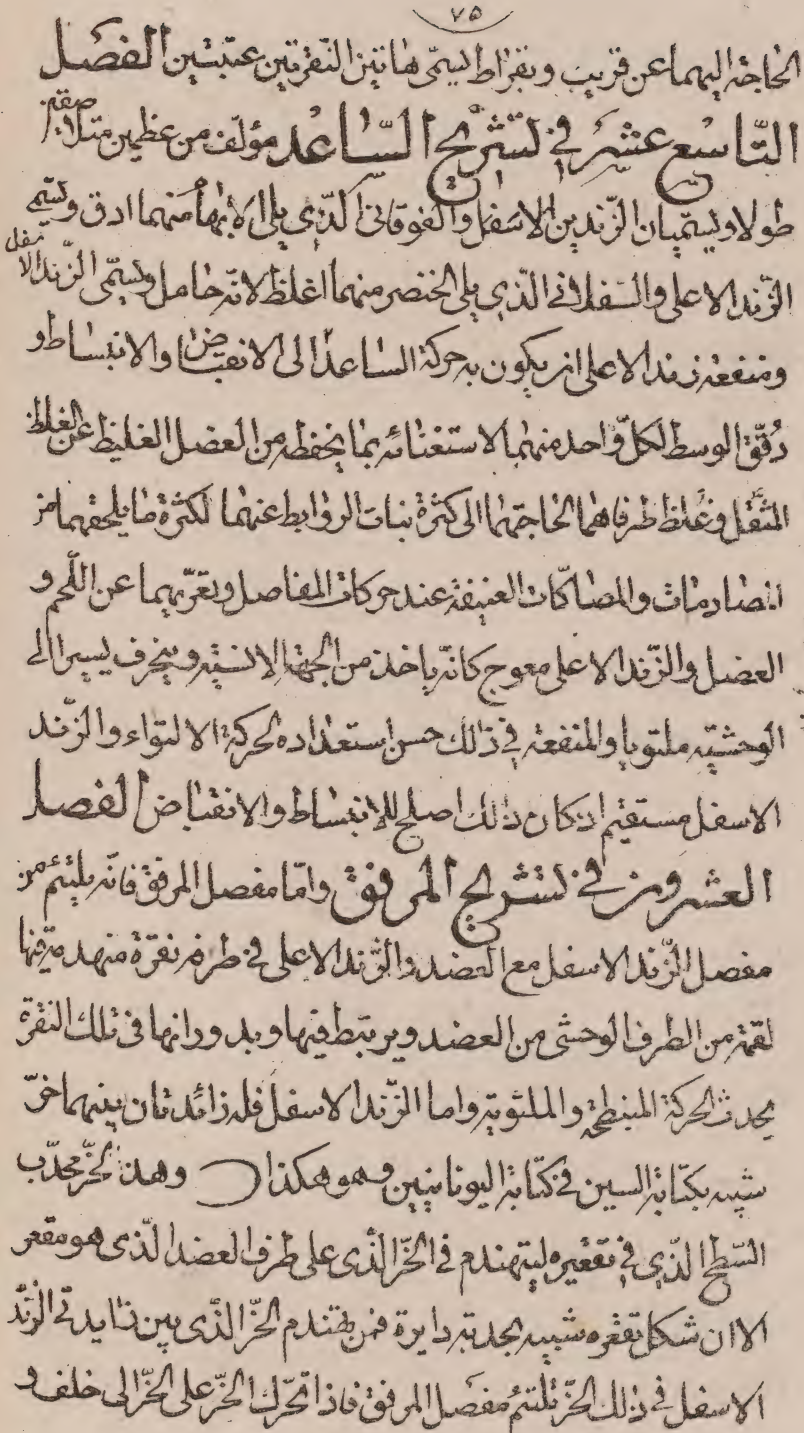 ٧٥
الحاجة اليهما عن قريب وبقراط يسمّى هاتين النّقرتين عتبتين الفصل
التّاسع عشر في تشريح السّاعد مؤلف من عظمين متلاصقين
طولا ويسمّيان الزّندين الاسفل والفوقانى الّذي يلى الابهام منهما ادق ويسمّى
الزّند الاعلى والسّفلانى الّذي يلى الخنصر منهما اغلظ لانّه حامل ويسمّى الزّند الاسفل
ومنفعة زند الاعلى ان يكون به حركة الساعد الى الانقباض والانبساط و
دُقّق الوسط لكلّ واحد منهما لاستغنائه بما يحفظه من العضل الغليظ عن الغلظ
المثقّل وغلّظ طرفاهما لحاجتهما الى كثرة نبات الروابط عنهما لكثرة ما يلحقهما من
المصادمات والمصاكّات العنيفة عند حركات المفاصل وتعرّيهما عن اللّحم و
العضل والزّند الاعلى معوج كانّه ياخذ من الجهة الانسيّة وينحرف يسيرا الى
الوحشيّة ملتويا والمنفعة في ذلك حسن استعداده لحركة الالتواء والزّند
الاسفل مستقيم اذ كان ذلك اصلح للانبساط والانقباض الفصل
العشرون في تشريح المرفق وامّا مفصل المرفق فانّه يلتئم من
مفصل الزّند الاسفل مع العضد والزّند الاعلى في طرفه نقرة مهندمة فيها
لقمة من الطرف الوحشى من العضد ويرتبط فيها وبدورانها فى تلك النقرة
يحدث الحركة المنبطحة والملتوية واما الزّند الاسفل فله زائدتان بينهما حزّ
شبيه بكتابة السين في كتابة اليونانيين وهو هكذا C وهذا الحزّ محدّب
السّطح الّذي في تقعيره ليتهندم في الحزّ الّذى على طرف العضد الّذى هو مقعر
الا ان شكل تقعّره شبيه بحدبة دايرة فمن تهندم الحزّ الّذى بين زايدتى الزّند
الاسفل في ذلك الحزّ يلتئم مفصل المرفق فاذا تحرّك الحزّ على الحزّ الى خلف و